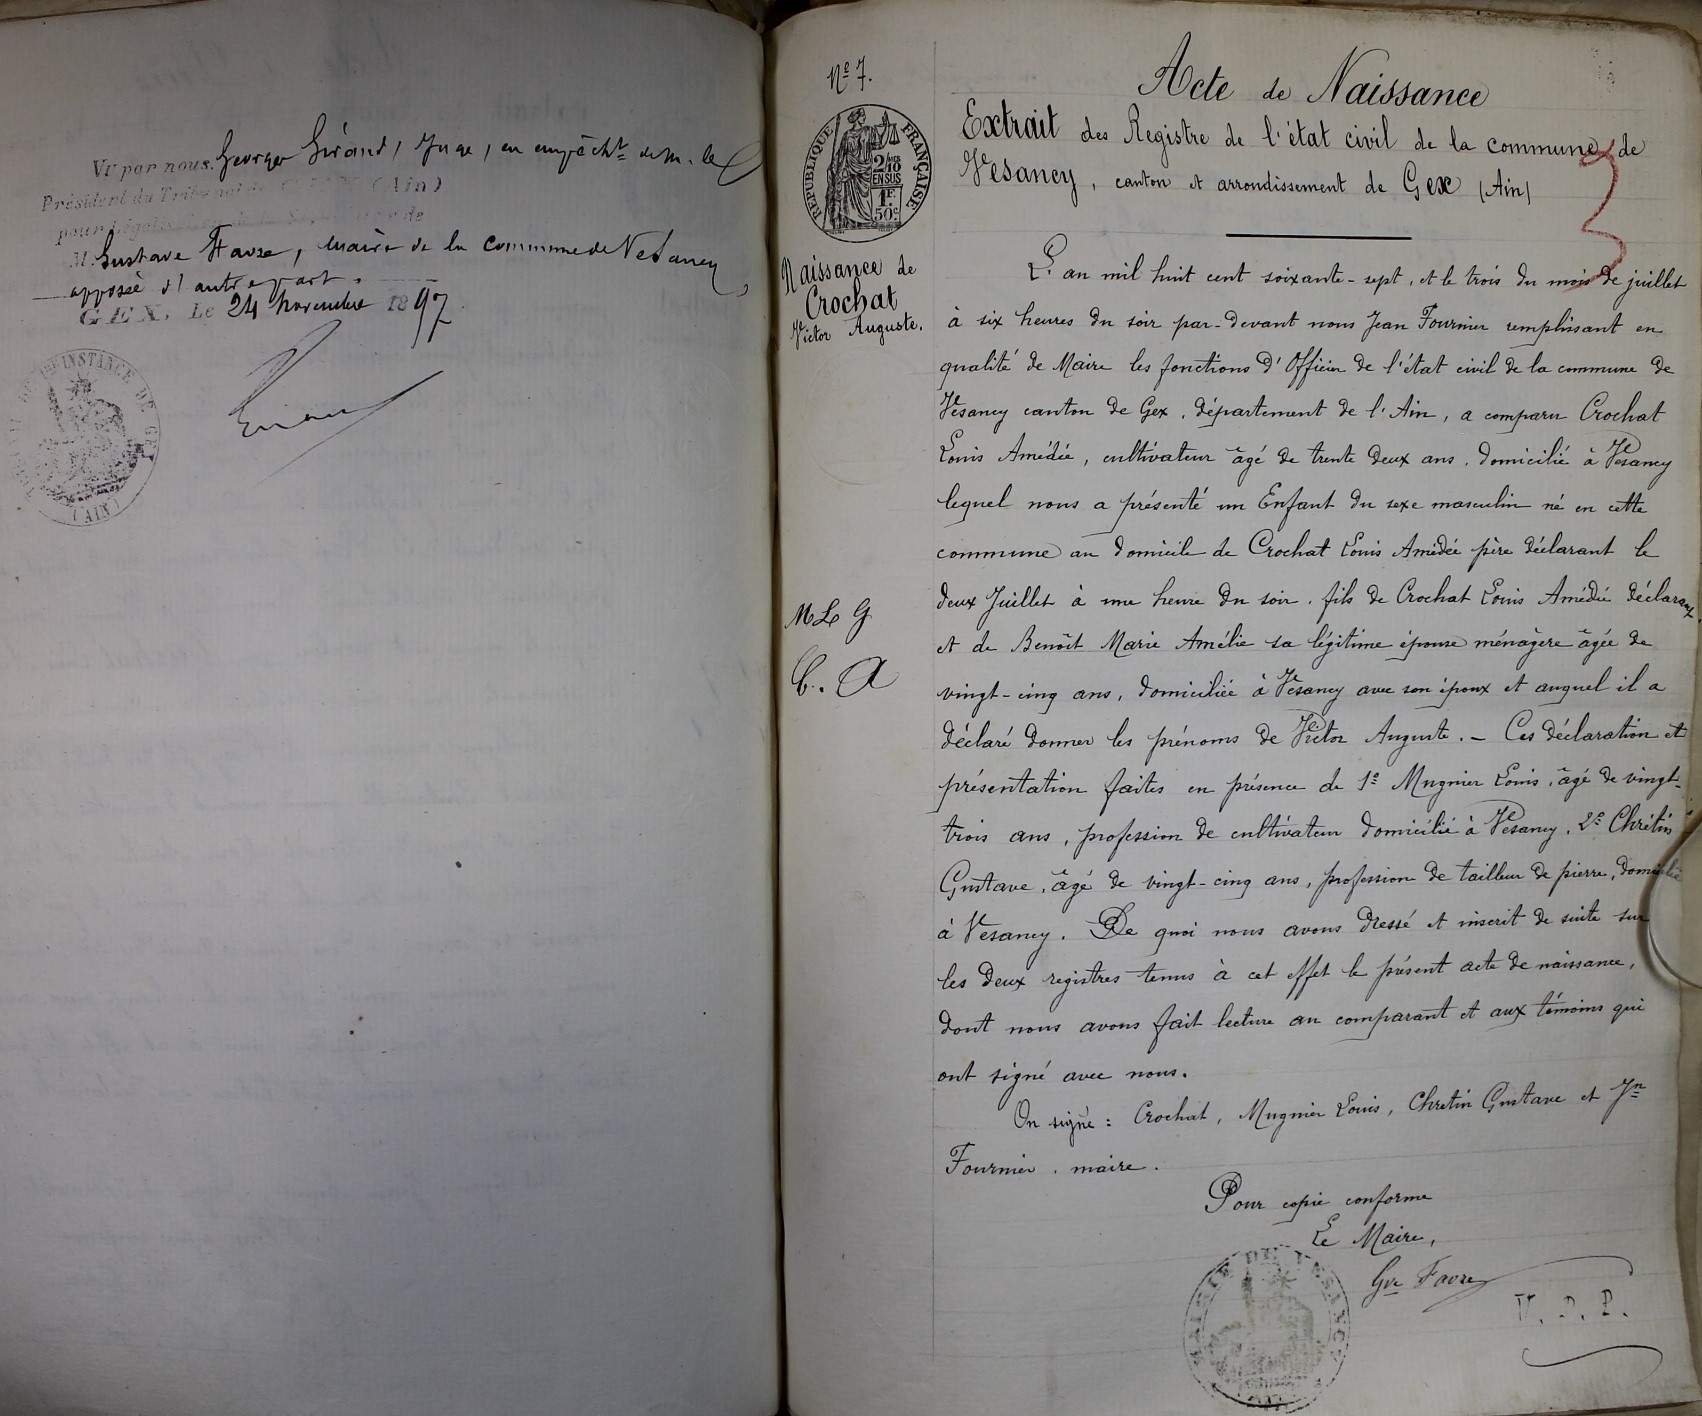 Vu par nous, George Girand, Juge, en empêcht de M. le
Président du Tribunal de GEX (Ain)
pour légalisation de la Signature de
M. Gustave Favre, maire de la Commune de Vesancy
apposée d'autre part.
GEX, Le 24 novembre 1897
TRIBUNAL DE 1ERE INSTANCE DE GEX
(AIN)
No 7.
RÉPUBLIQUE FRANÇAISE
2/10 EN SUS
1F 50c
Naissance de
Crochat
Victor Auguste.
M L G
C. A
Acte de Naissance
Extrait des Registre de l'état civil de la commune de
Vesancy, canton et arrondissement de Gex (Ain)
L'an mil huit cent soixante-sept, et le trois du mois de juillet
à six heures du soir par-devant nous Jean Fournier remplissant en
qualité de Maire les fonctions d'Officier de l'état civil de la commune de
Vesancy canton de Gex, département de l'Ain, a comparu Crochat
Louis Amédée, cultivateur âgé de trente deux ans, domicilié à Vesancy
lequel nous a présenté un Enfant du sexe masculin né en cette
commune au domicile de Crochat Louis Amédée père déclarant le
deux Juillet à une heure du soir, fils de Crochat Louis Amédée déclarant
et de Benoît Marie Amélie sa légitime épouse ménagère âgée de
vingt-cinq ans, domiciliée à Vesancy avec son époux et auquel il a
déclaré donner les prénoms de Victor Auguste. - Ces déclaration et
présentation faites en présence de 1o Mugnier Louis, âgé de vingt-
trois ans, profession de cultivateur domicilié à Vesancy, 2o Chrétin
Gustave, âgé de vingt-cinq ans, profession de tailleur de pierre, domicilié
à Vesancy. De quoi nous avons dressé et inscrit de suite sur
les deux registres tenus à cet effet le présent acte de naissance,
dont nous avons fait lecture au comparant et aux témoins qui
ont signé avec nous.
On signé : Crochat, Mugnier Louis, Chretin Gustave et Jn
Fournier, maire.
Pour copie conforme
Le Maire,
Gve Favre
MAIRIE DE VESANCY
V. D. P.